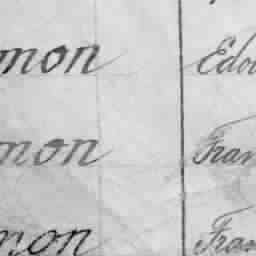 mon Edou
mon Fran
mon Fran